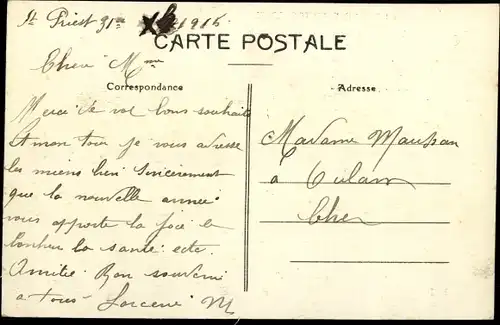 St Priest 31 1916
CARTE POSTALE
Chère Mme
Correspondance
Merci de vos bons souhaits
A mon tour je vous adresse
les miens bien sincèrement
que la nouvelle année
vous apporte la joie le
bonheur la santé ect.
Amitié Bon souvenir
a tous M
Adresse
Madame Maussan
a Culan
Cher